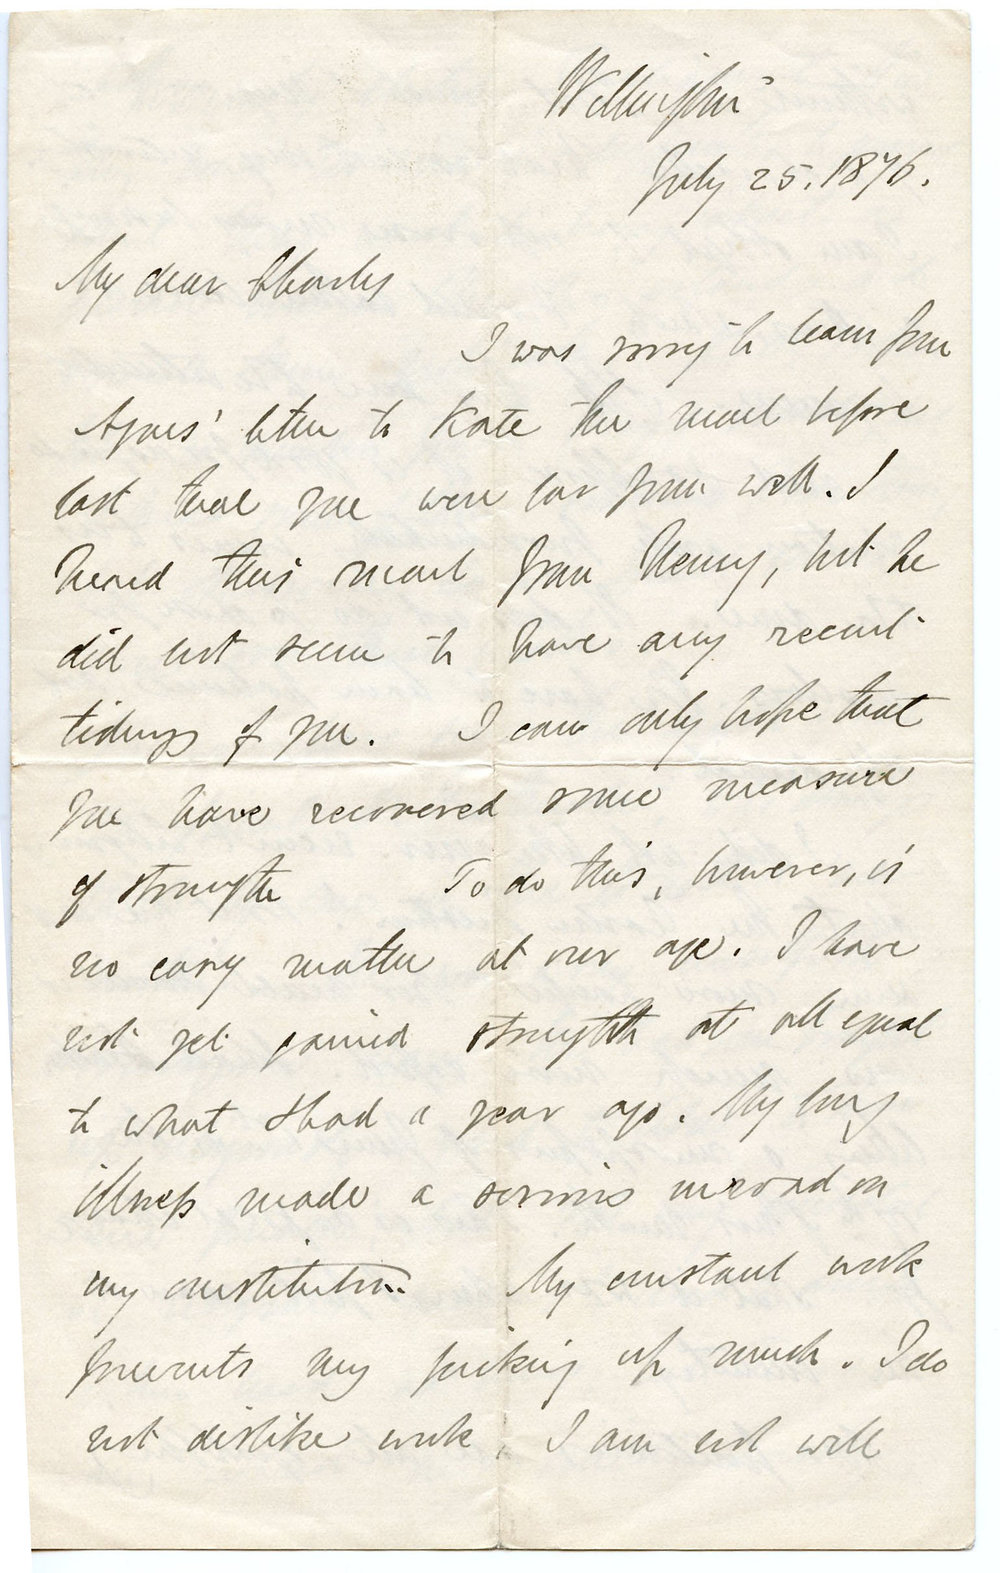 Wellington
July 25. 1876.
My dear Charles
I was sorry to learn from
Agnes' letter to Kate the mail before
last that you were far from well. I
heard this mail from Henry, but he
did not seem to have any recent
tidings of you. I can only hope that
you have recovered some measure
of strength To do this, however, is
no easy matter at our age. I have
not yet gained strength at all equal
to what I had a year ago. My long
illness made a serious inroad on
my constitution. My constant work
prevents my picking up much. I do
not dislike work, I am not well